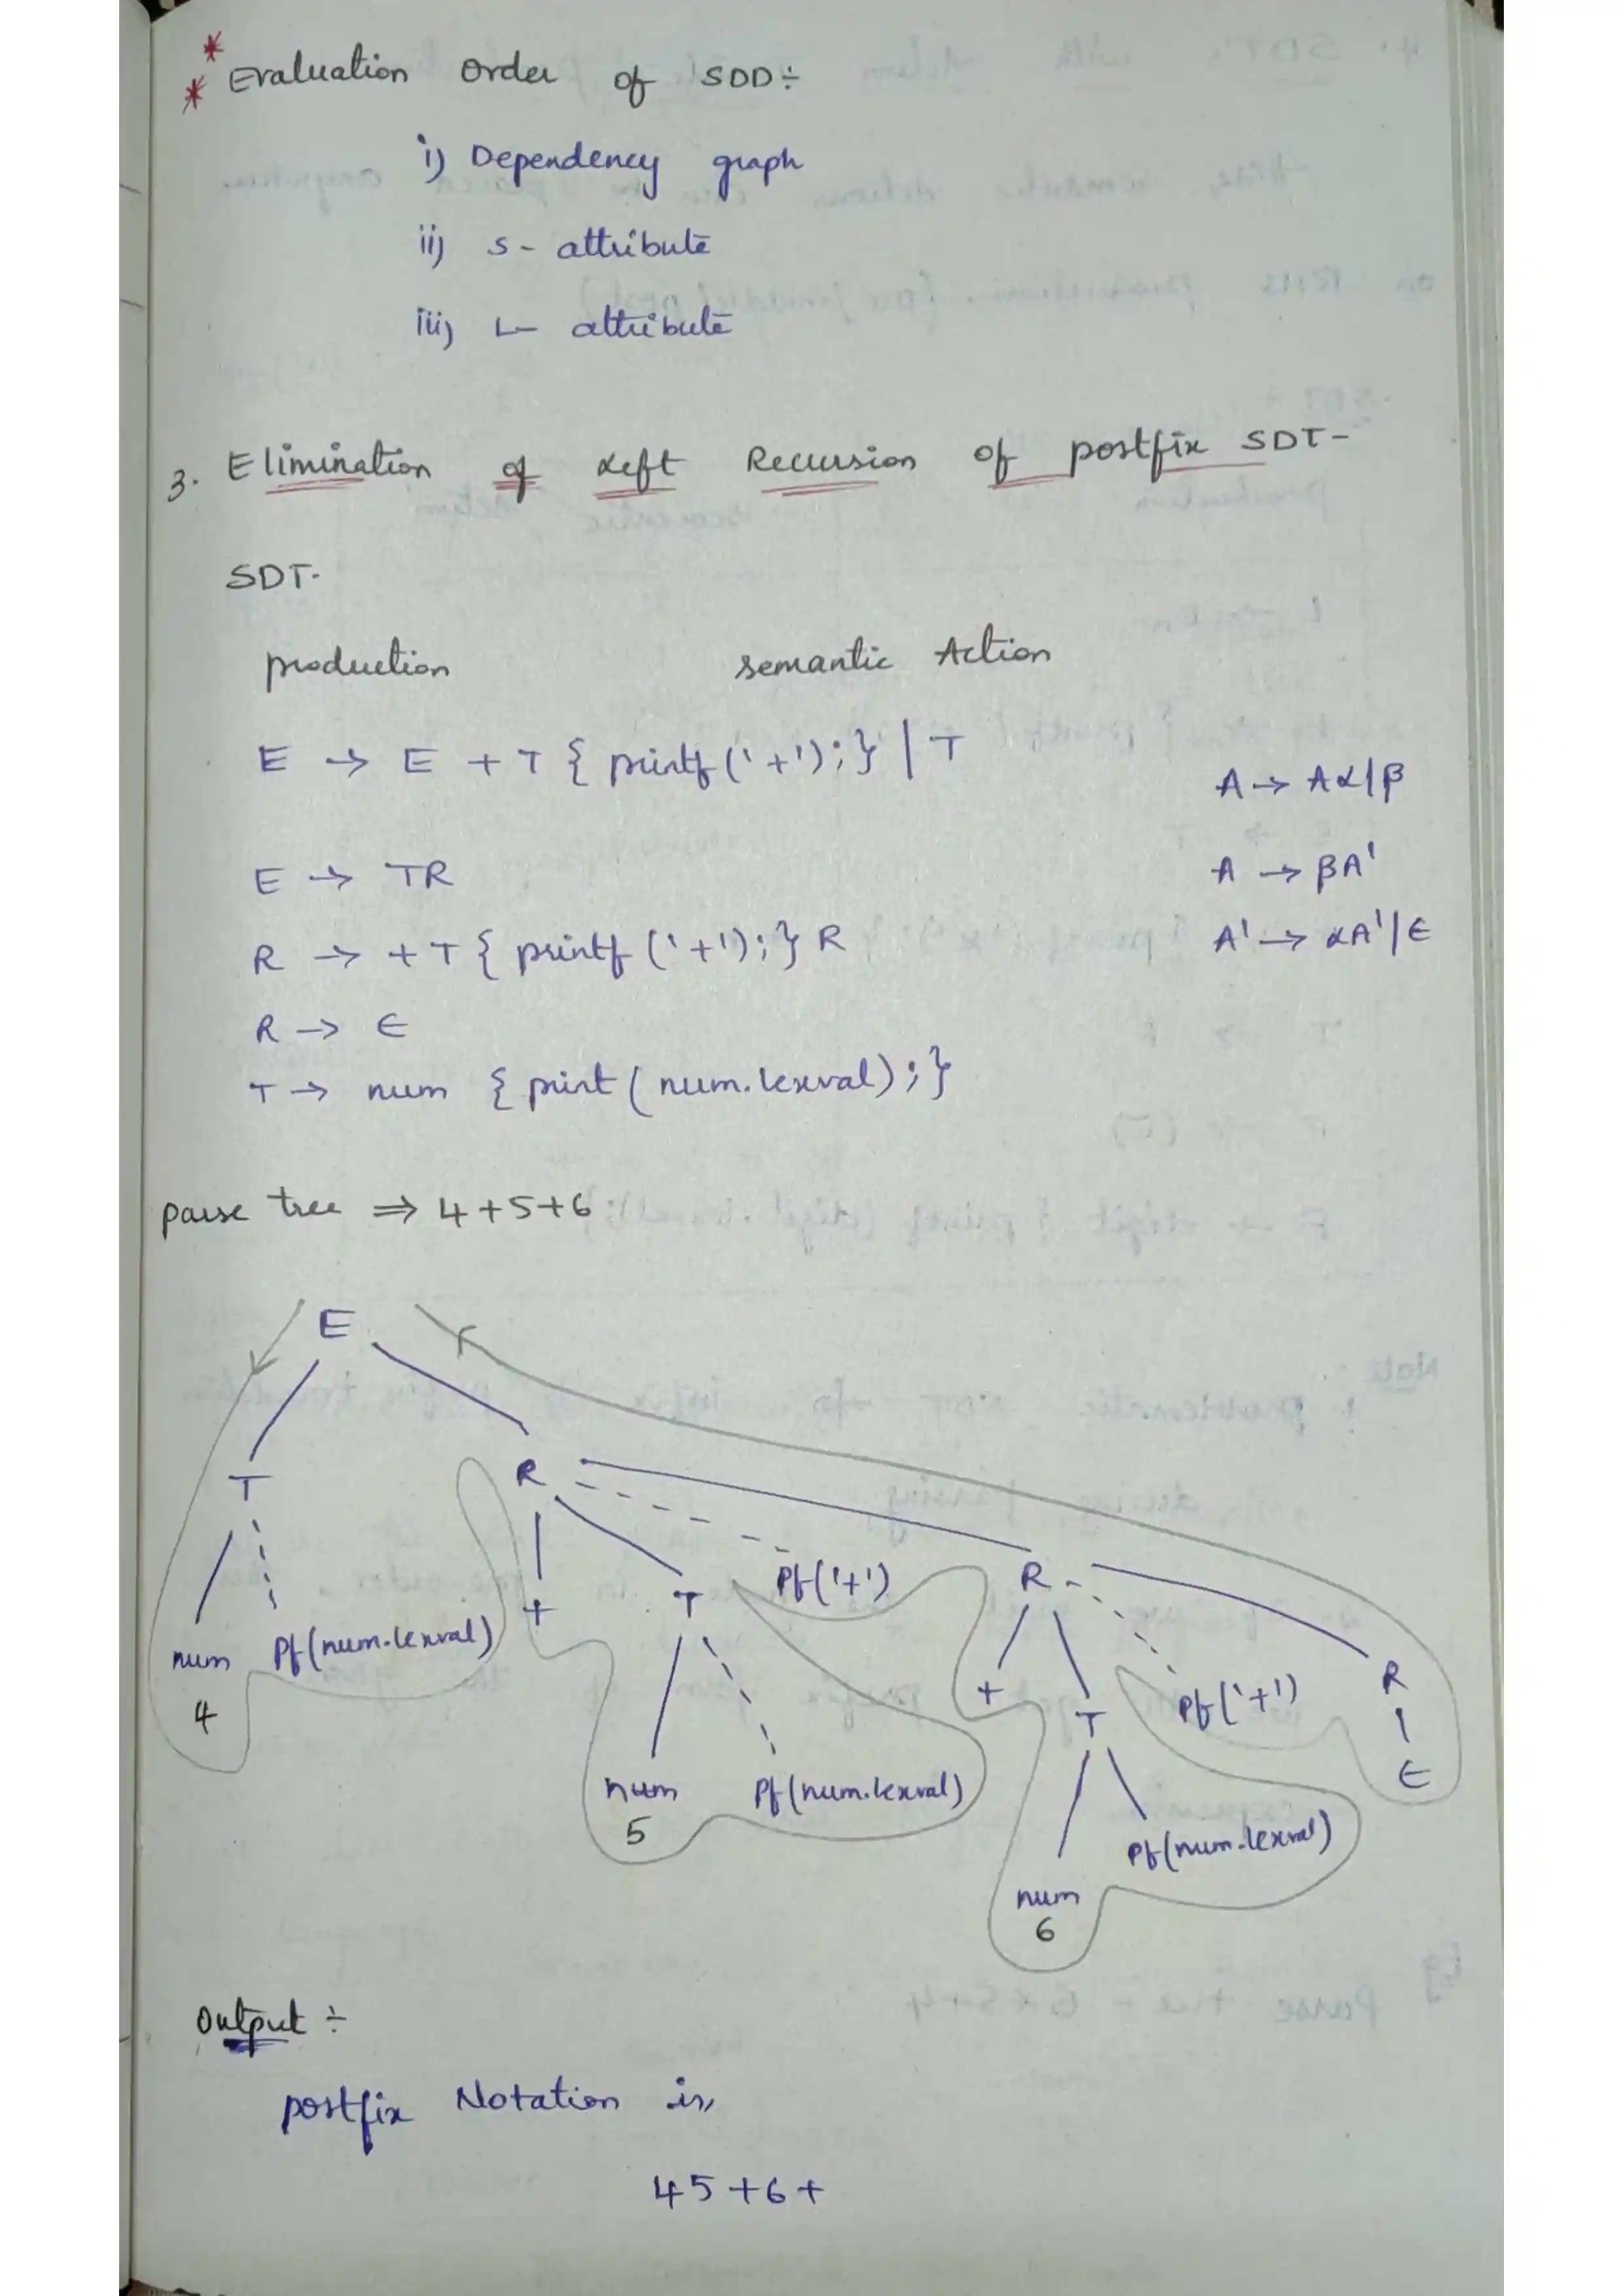 * * Evaluation Order of SDD÷
i) Dependency graph
ii) S - attribute
iii) L - attribute
3. Elimination of Left Recursion of postfix SDT-
SDT-
production semantic Action
E → E + T { printf('+'); } | T
A → Aα|β
E → TR
A → βA'
R → + T { printf ('+'); } R
A' → αA'|ε
R → ε
T → num { print ( num.lexval); }
parse tree ⇒ 4+5+6
E
T R
Pf('+') R
+ T
num Pf(num.lexval)
4
+ T Pf('+') R
num Pf(num.lexval)
5
ε
Pf(num.lexval)
num
6
Output ÷
postfix Notation is,
45+6+